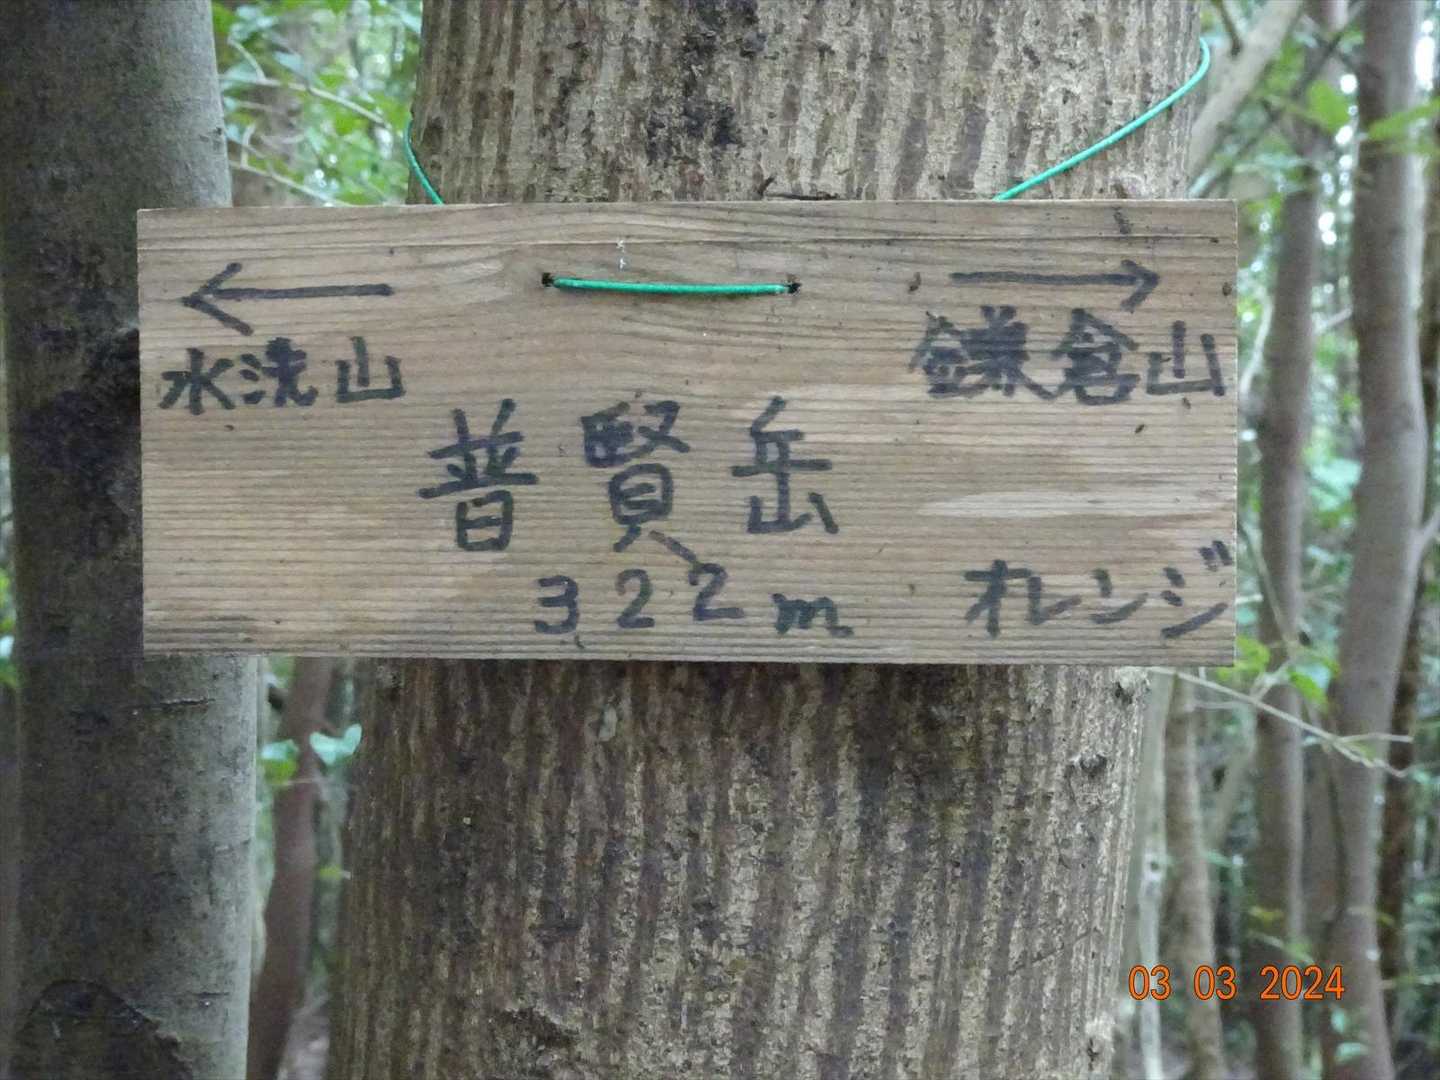 ← →
水洗山 鎌倉山
普賢岳
322m オレンジ
03 03 2024